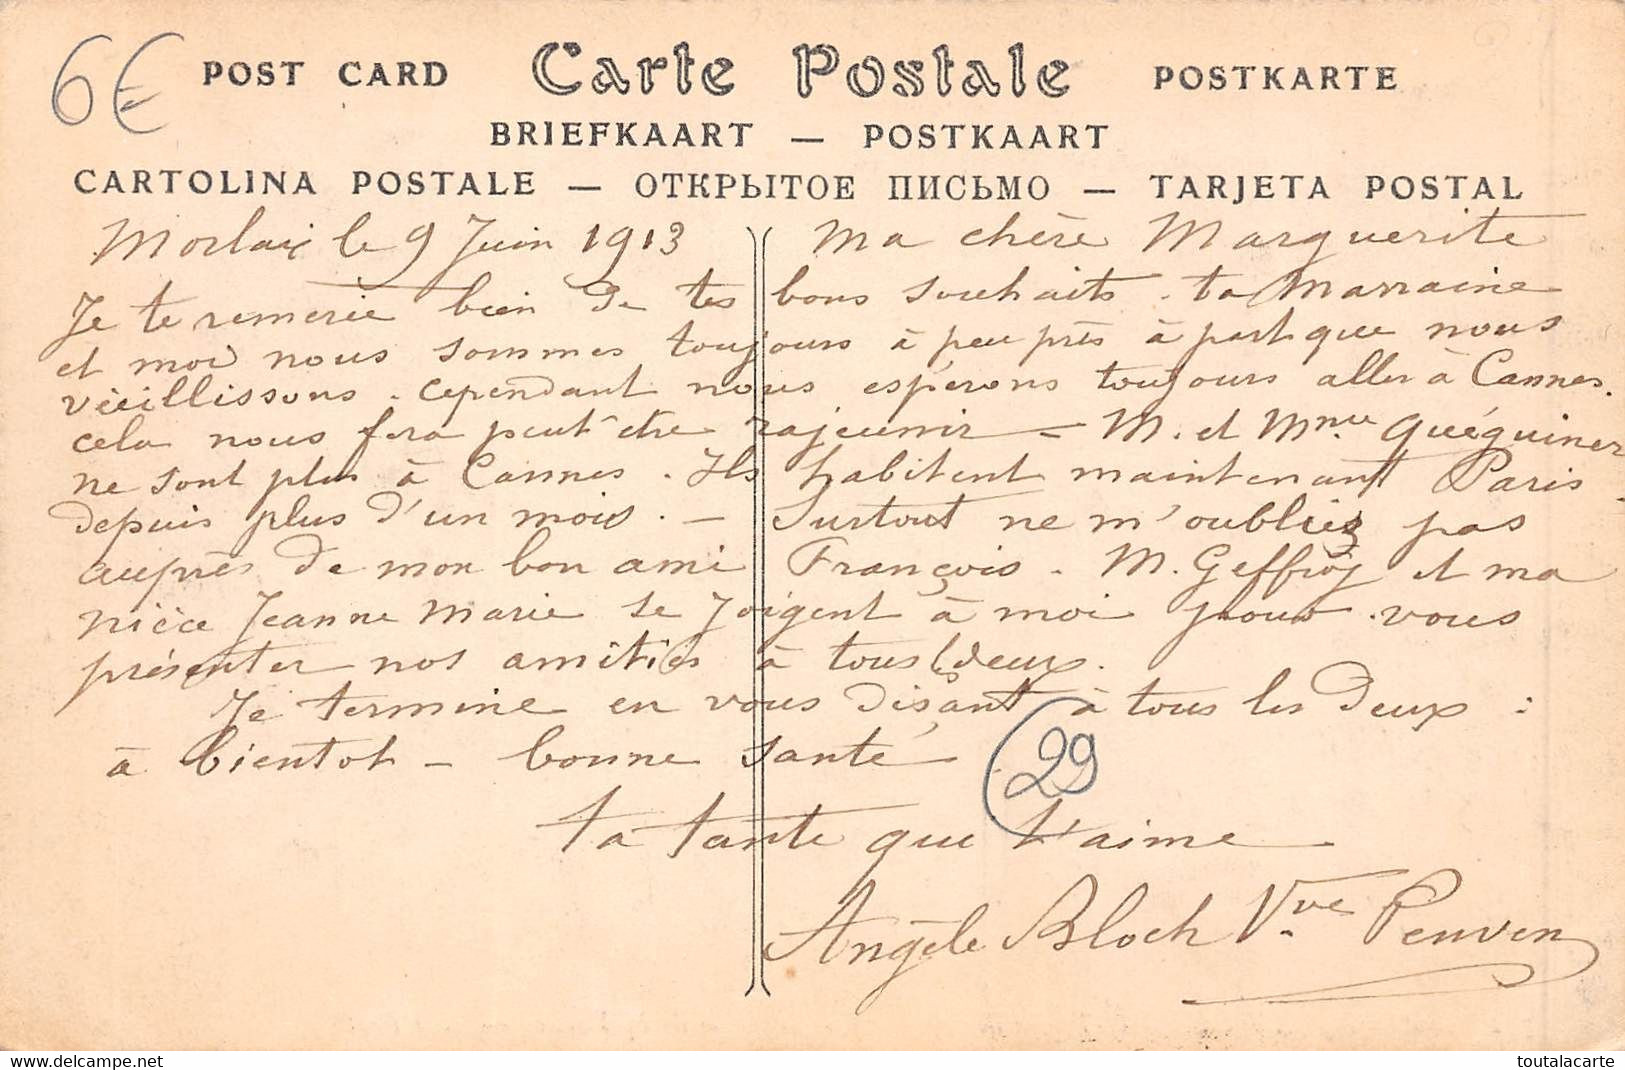 6€ POST CARD Carte Postale POSTKARTE
BRIEFKAART — POSTKAART
CARTOLINA POSTALE — ОТКРЫТОЕ ПИСЬМО — TARJETA POSTAL
Morlaix le 9 Juin 1913 Ma chère Marguerite
Je te remercie bien de tes bons souhaits. ta Marraine
et moi nous sommes toujours à peu près à part que nous
vieillissons. cependant nous espérons toujours aller à Cannes.
cela nous fera peut être rajeunir — M. et Mme Quéguiner
ne sont plus à Cannes. Ils habitent maintenant Paris
depuis plus d'un mois. — Surtout ne m'oubliez pas
auprès de mon bon ami François. M. Geffroy et ma
nièce Jeanne Marie se joigent à moi pour vous
présenter nos amitiés à tous (deux.
Je termine en vous disant à tous les deux :
à bientot — bonne santé
29
ta tante qui t'aime
Angèle Bloch Vve Penven
toutalacarte